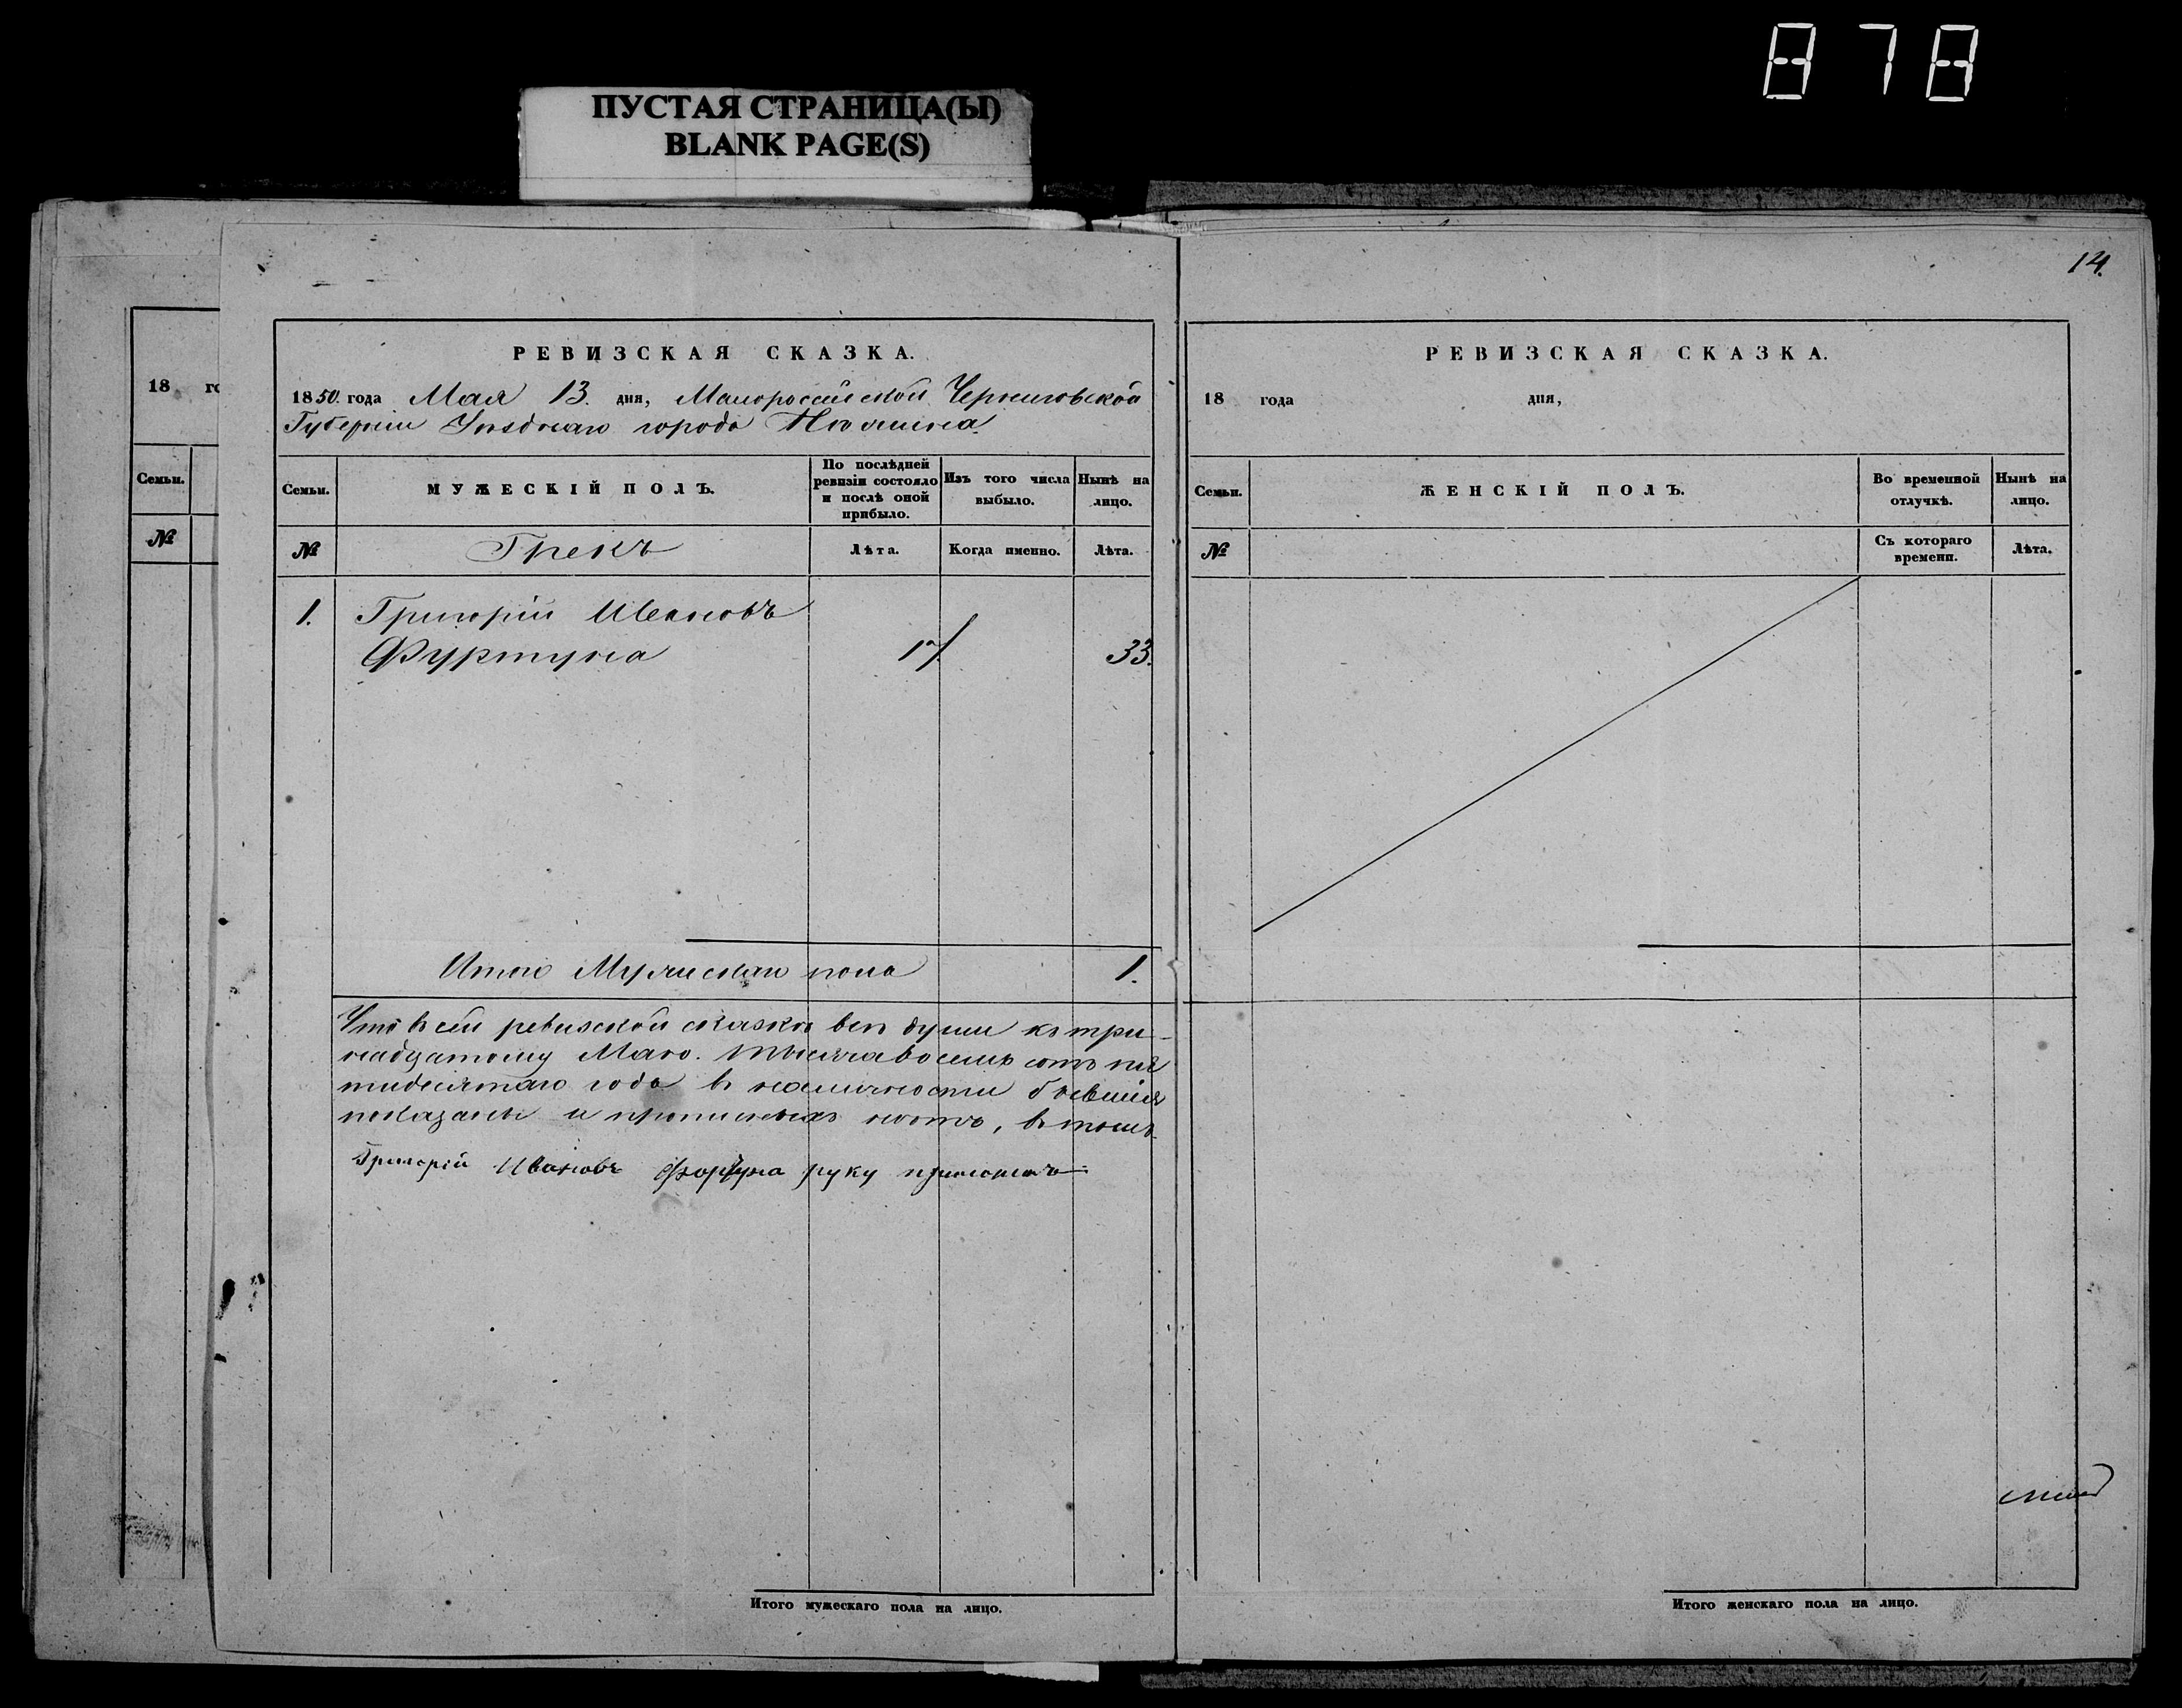 878
ПУСТАЯ СТРАНИЦА(Ы)
BLANK PAGE(S)
18 го
Семьи.
№
РЕВИЗСКАЯ СКАЗКА.
1850. года Мая 13. дня, Малороссійской Черниговской
Губерніи Уѣзднаго города Нѣжина
Семьи.
МУЖЕСКІЙ ПОЛЪ.
По послѣдней ревизіи состояло и послѣ оной прибыло.
Изъ того числа выбыло.
Нынѣ на лицо.
№
Грекъ
Лѣта.
Когда именно.
Лѣта.
1. Григорій Ивановъ
Фуртуна 17. 33.
Итого Мужескаго пола 1.
Что в сей ревизской сказкѣ всѣ души къ три-
надцатому Маю. тысяча восемь сотъ пя
тидесятаго года в наличности бывшія
показаны и прописныхъ нѣтъ, в томъ
Григорій Ивановъ Фортуна руку приложилъ
Итого мужескаго пола на лицо.
14.
РЕВИЗСКАЯ СКАЗКА.
18 года дня,
Семьи.
ЖЕНСКІЙ ПОЛЪ.
Во временной отлучкѣ.
Нынѣ на лицо.
№
Съ котораго времени.
Лѣта.
Итого женскаго пола на лицо.